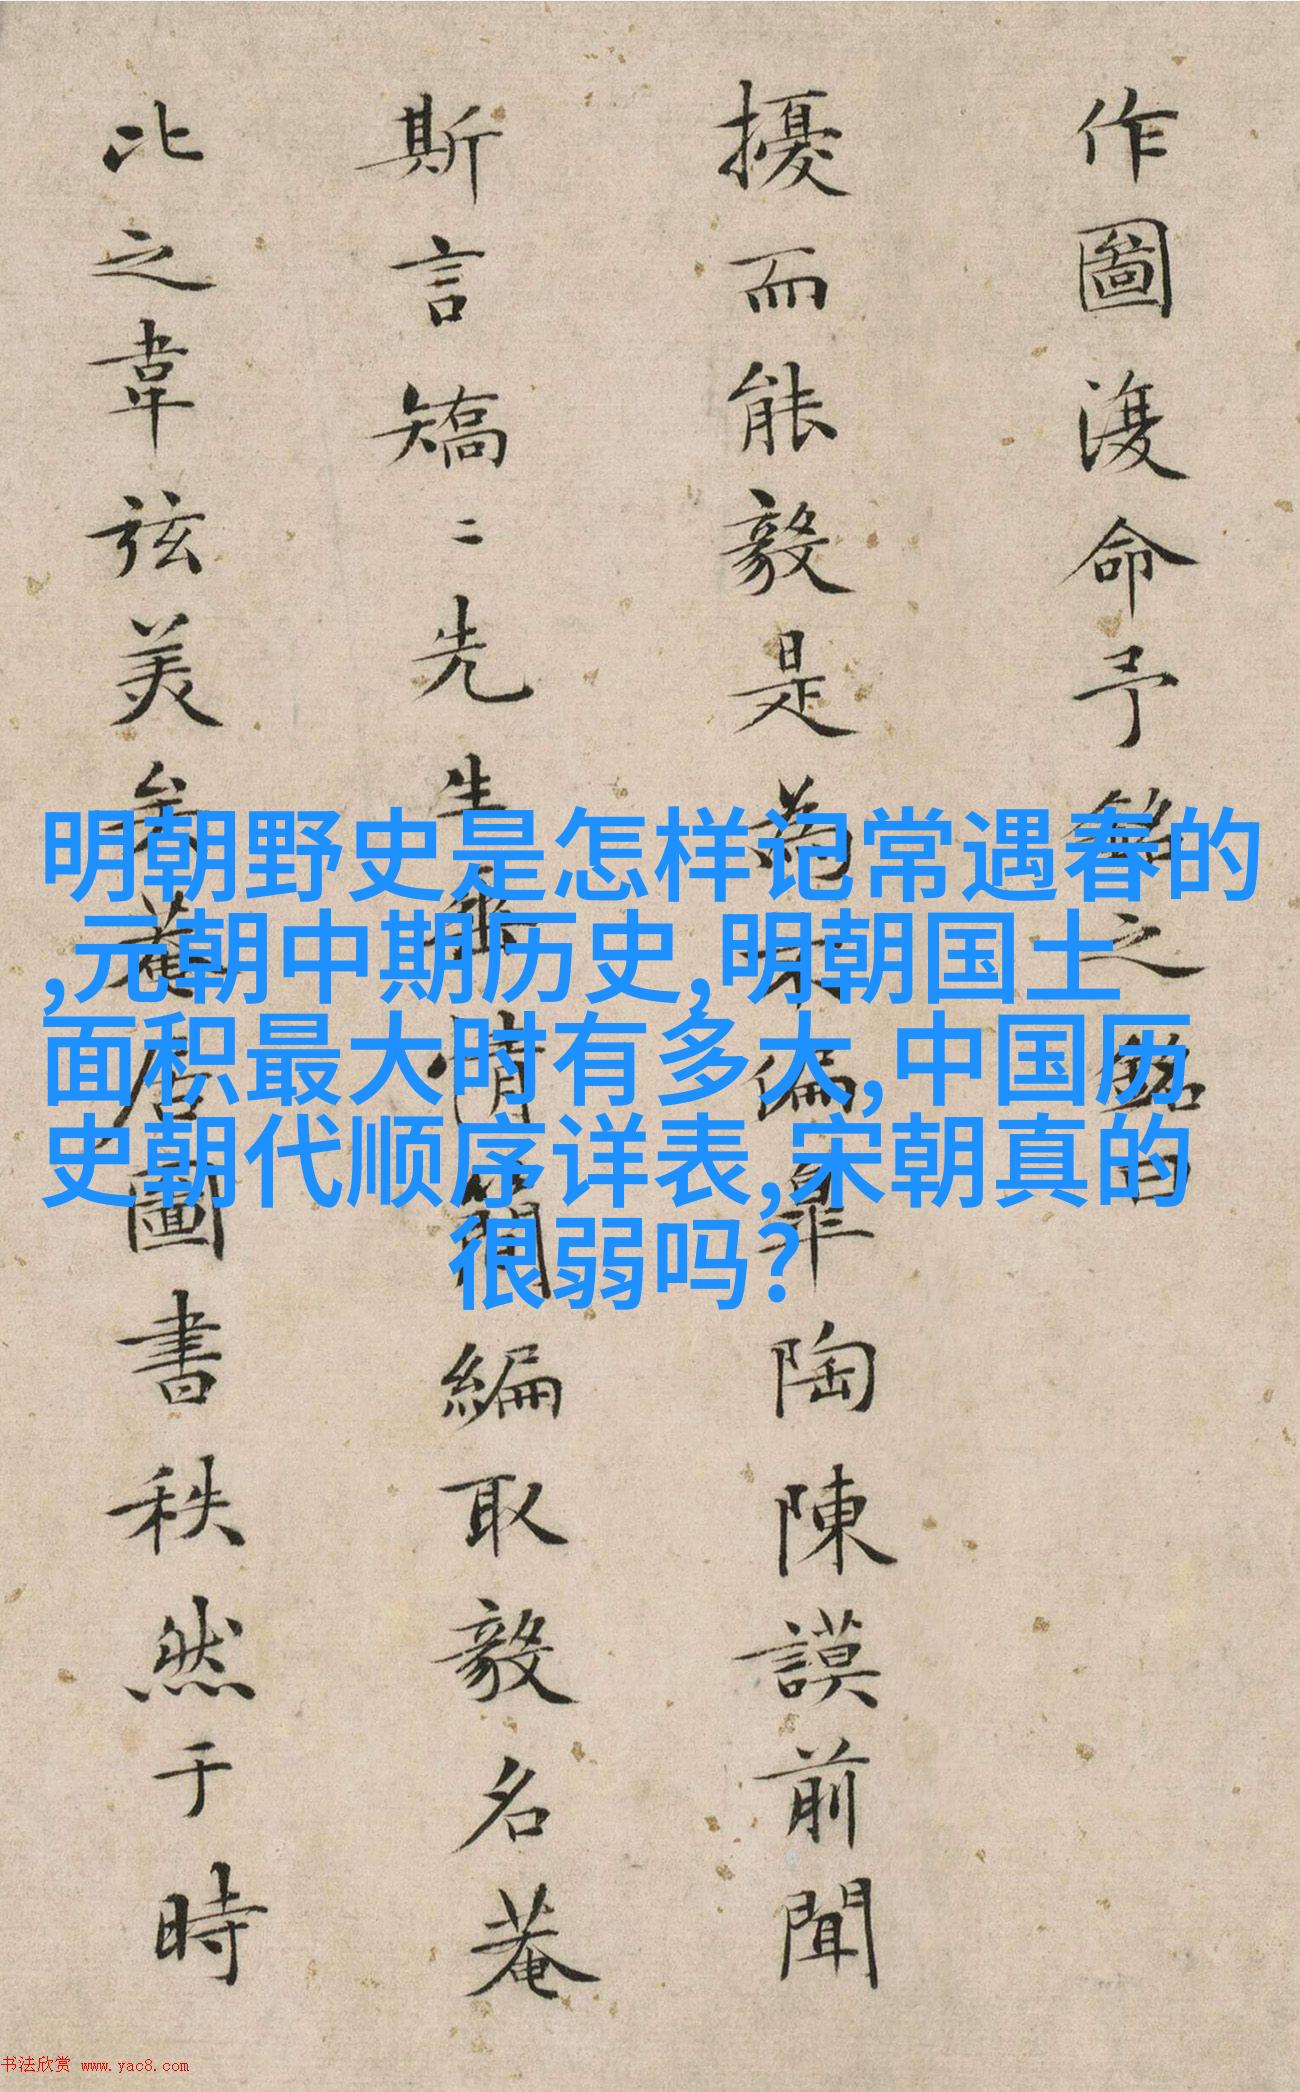 作圖復命予銘之銘曰
擾而能毅是為不偏皋陶陳謨前聞
斯言矯二先生無情簡編取毅名菴
比之韋弦美矣菴居圖書秩然于時
明朝野史是怎样记常遇春的
,元朝中期历史,明朝国土
面积最大时有多大,中国历
史朝代顺序详表,宋朝真的
很弱吗?
书法欣赏 www.yac8.com